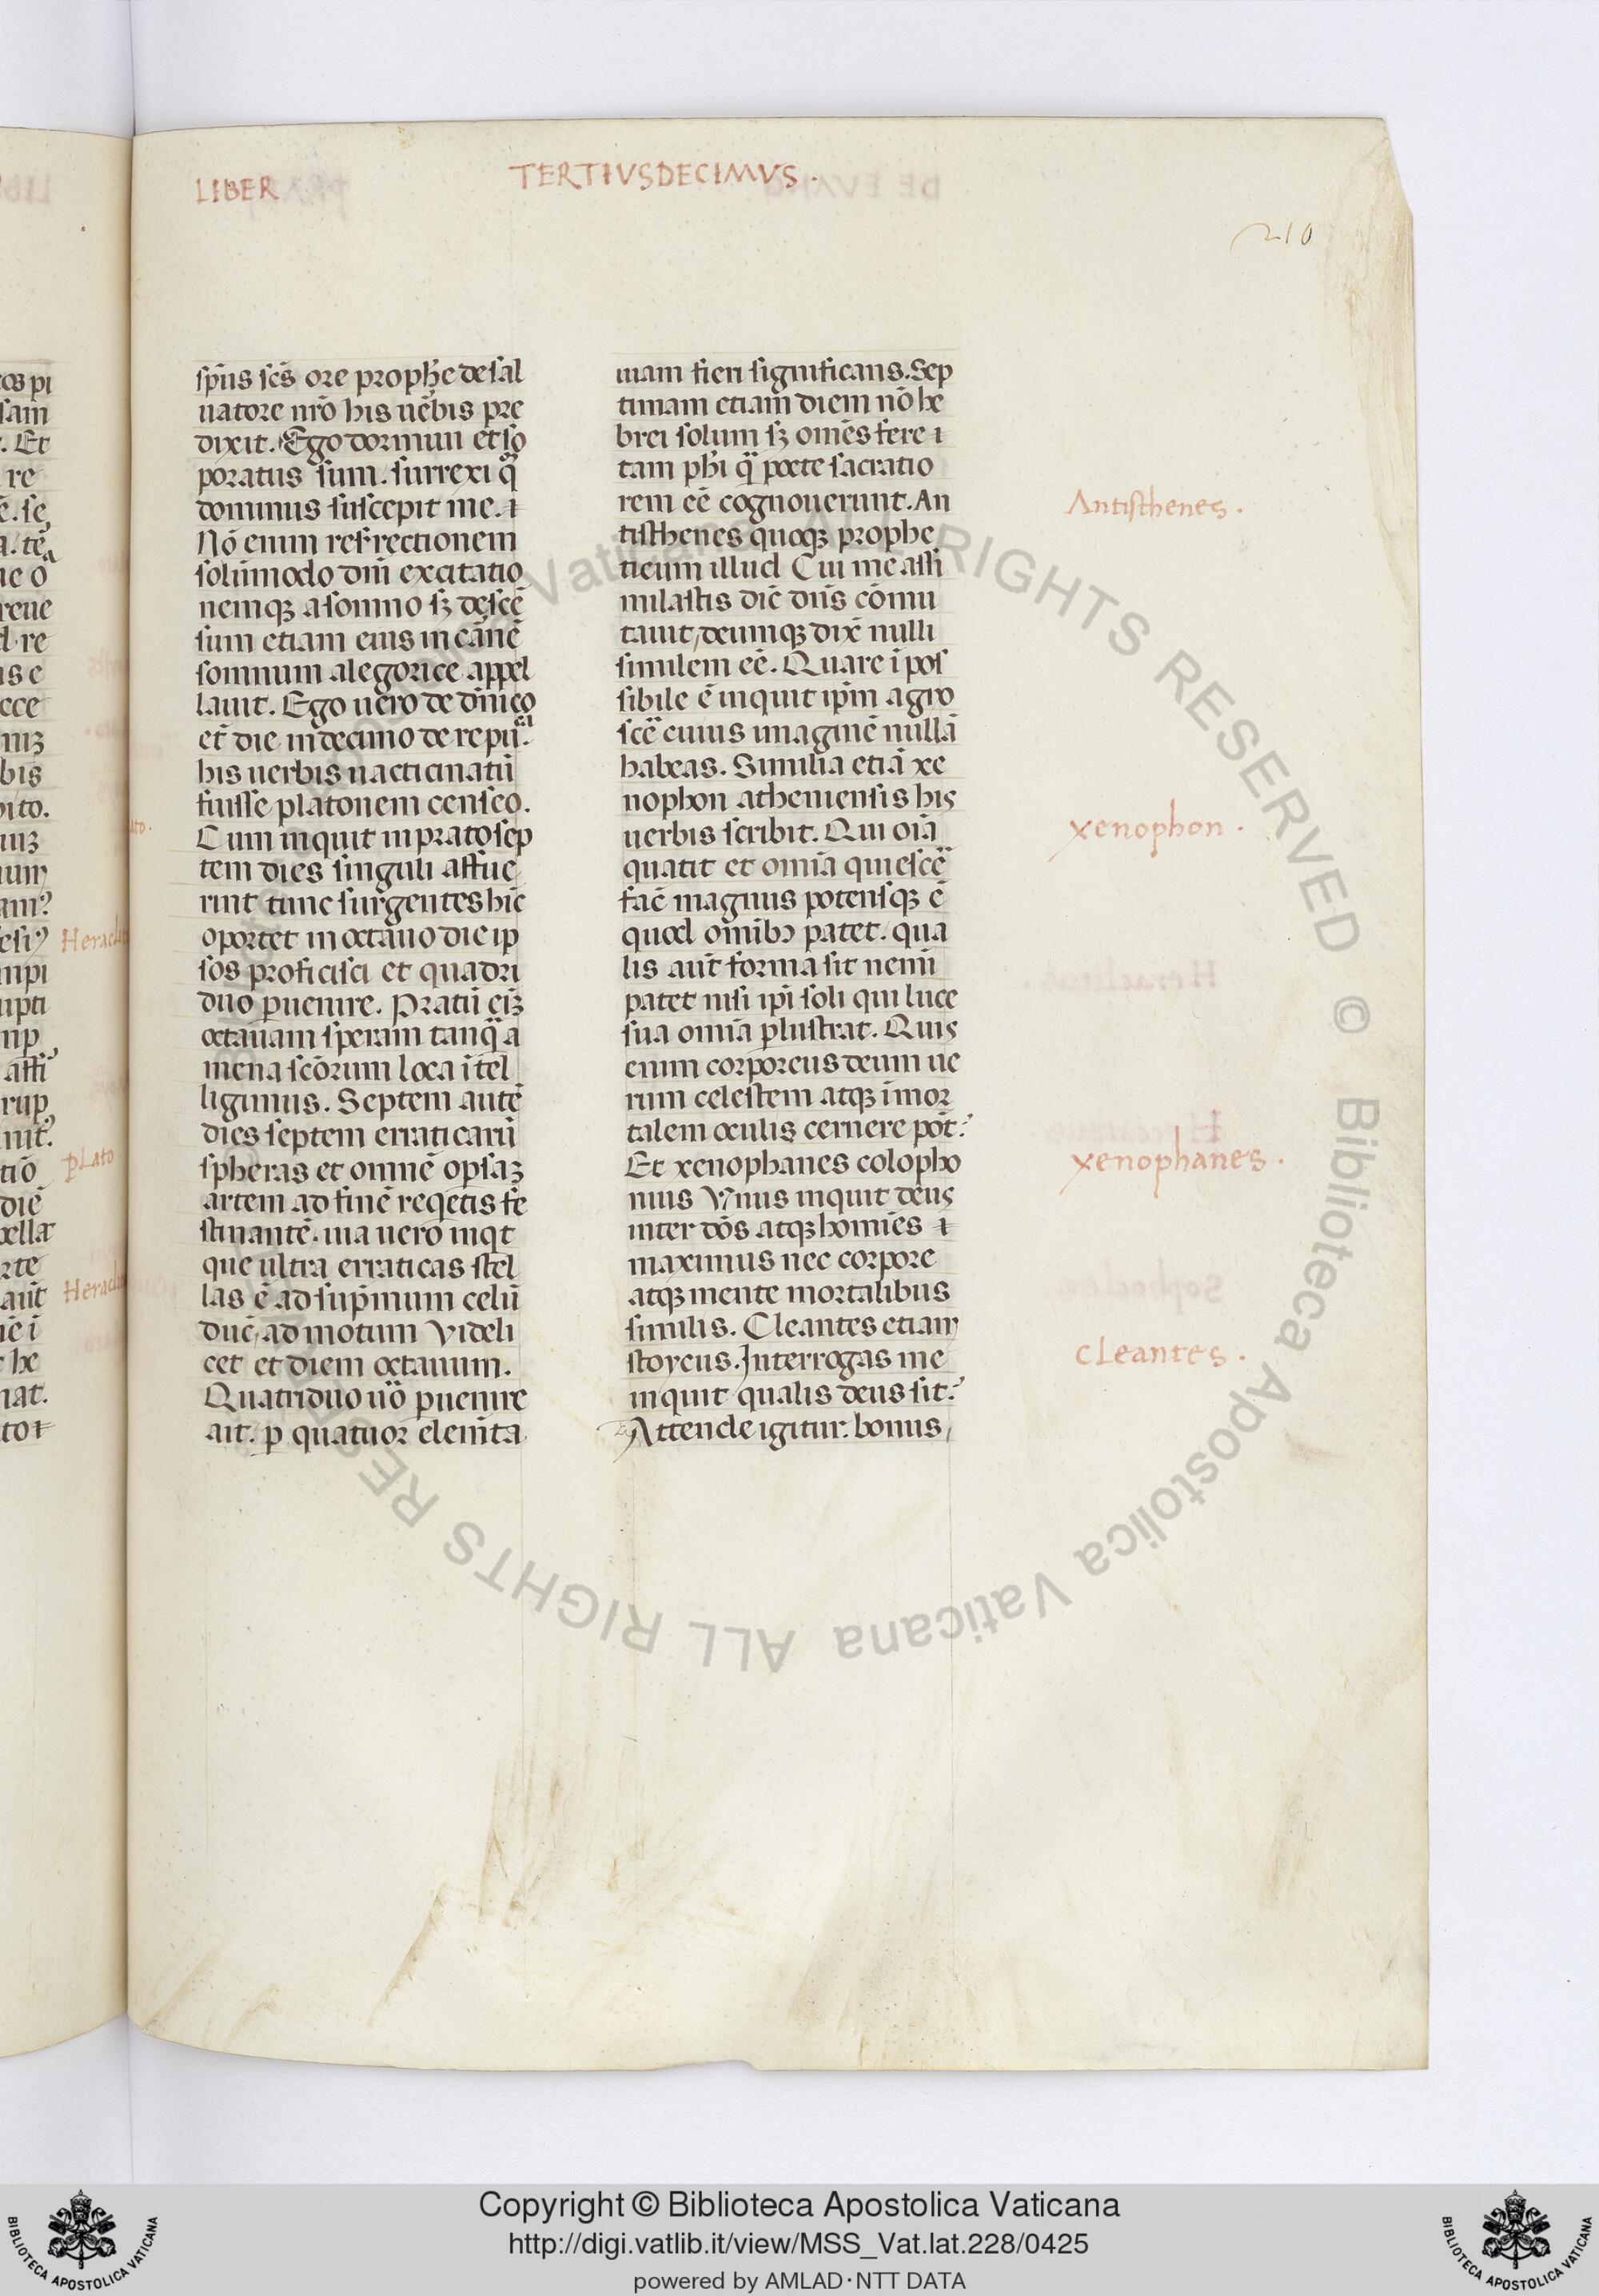 LIBER TERTIUSDECIMUS.
210
sp̄us sc̄s ore prophȩ de sal
uatore nr̄o his uerbis pre
dixit. Ego dormiui et so
poratus sum. surrexi q̄
dominus suscepit me. ⁊
Nō enim resrectionem
solum̄odo dn̄i excitatio
nemqꝫ a somno sꝫ descē
sum etiam eius in carnē
somnum alegorice appel
lauit. Ego uero de dn̄ico
et̄ die in decimo de repu.ᶜᵃ
his uerbis uacticinatū
fuisse platonem censeo.
Cum inquit in prato sep
tem dies singuli affue
rint tunc surgentes hīc
oportet in octauo die ip
sos proficisci et quadri
duo ꝑuenire. Pratū eīꝫ
octauam speram tanq̄ a
mena sc̄orum loca ītel
ligimus. Septem autē
dies septem erraticarū
spheras et omnē opīaꝫ
artem ad finē reqetis fe
stinantē. uia uero inqt
que ultra erraticas stel
las ē ad sup̄mum celū
ducē, ad motum videli
cet et diem octauum.
Quatriduo uō ꝑuenire
ait. ꝑ quatuor elem̄ta
uiam fieri significans. Sep
timam etiam diem nō he
brei solum sꝫ omēs fere ⁊
tam ph̄i q̄ poete sacratio
rem eē cognouerunt. An
tisthenes quoqꝫ prophe
ticum illud Cui me assi
milastis dic̄ dn̄s cōmu
tauit, deumqꝫ dixē nulli
similem eē. Quare īpos
sibile ē inquit ip̄m agno
scē cuius imaginē nullā
habeas. Similia etiā xe
nophon atheniensis his
uerbis scribit. Qui oīa
quatit et omīa quiescē
fac̄ magnus potensqꝫ ē
quod omībꝫ patet. qua
lis aut̄ forma sit nemī
patet nisi ip̄i soli qui luce
sua omīa ꝑlustrat. Quis
enim corporeus deum ue
rum celestem atqꝫ īmor
talem oculis cernere pōt?
Et xenophanes colopho
nius Vnus inquit deus
inter dōs atqꝫ homīes ⁊
maximus nec corpore
atqꝫ mente mortalibus
similis. Cleantes etiam
stoycus. Interrogas me
inquit qualis deus sit?
Attende igitur. bonus,
Antisthenes.
xenophon.
xenophanes.
cleantes.
Plato
Copyright © Biblioteca Apostolica Vaticana
http://digi.vatlib.it/view/MSS_Vat.lat.228/0425
powered by AMLAD·NTT DATA
BIBLIOTECA APOSTOLICA VATICANA
BIBLIOTECA APOSTOLICA VATICANA
© Biblioteca Apostolica Vaticana ALL RIGHTS RESERVED